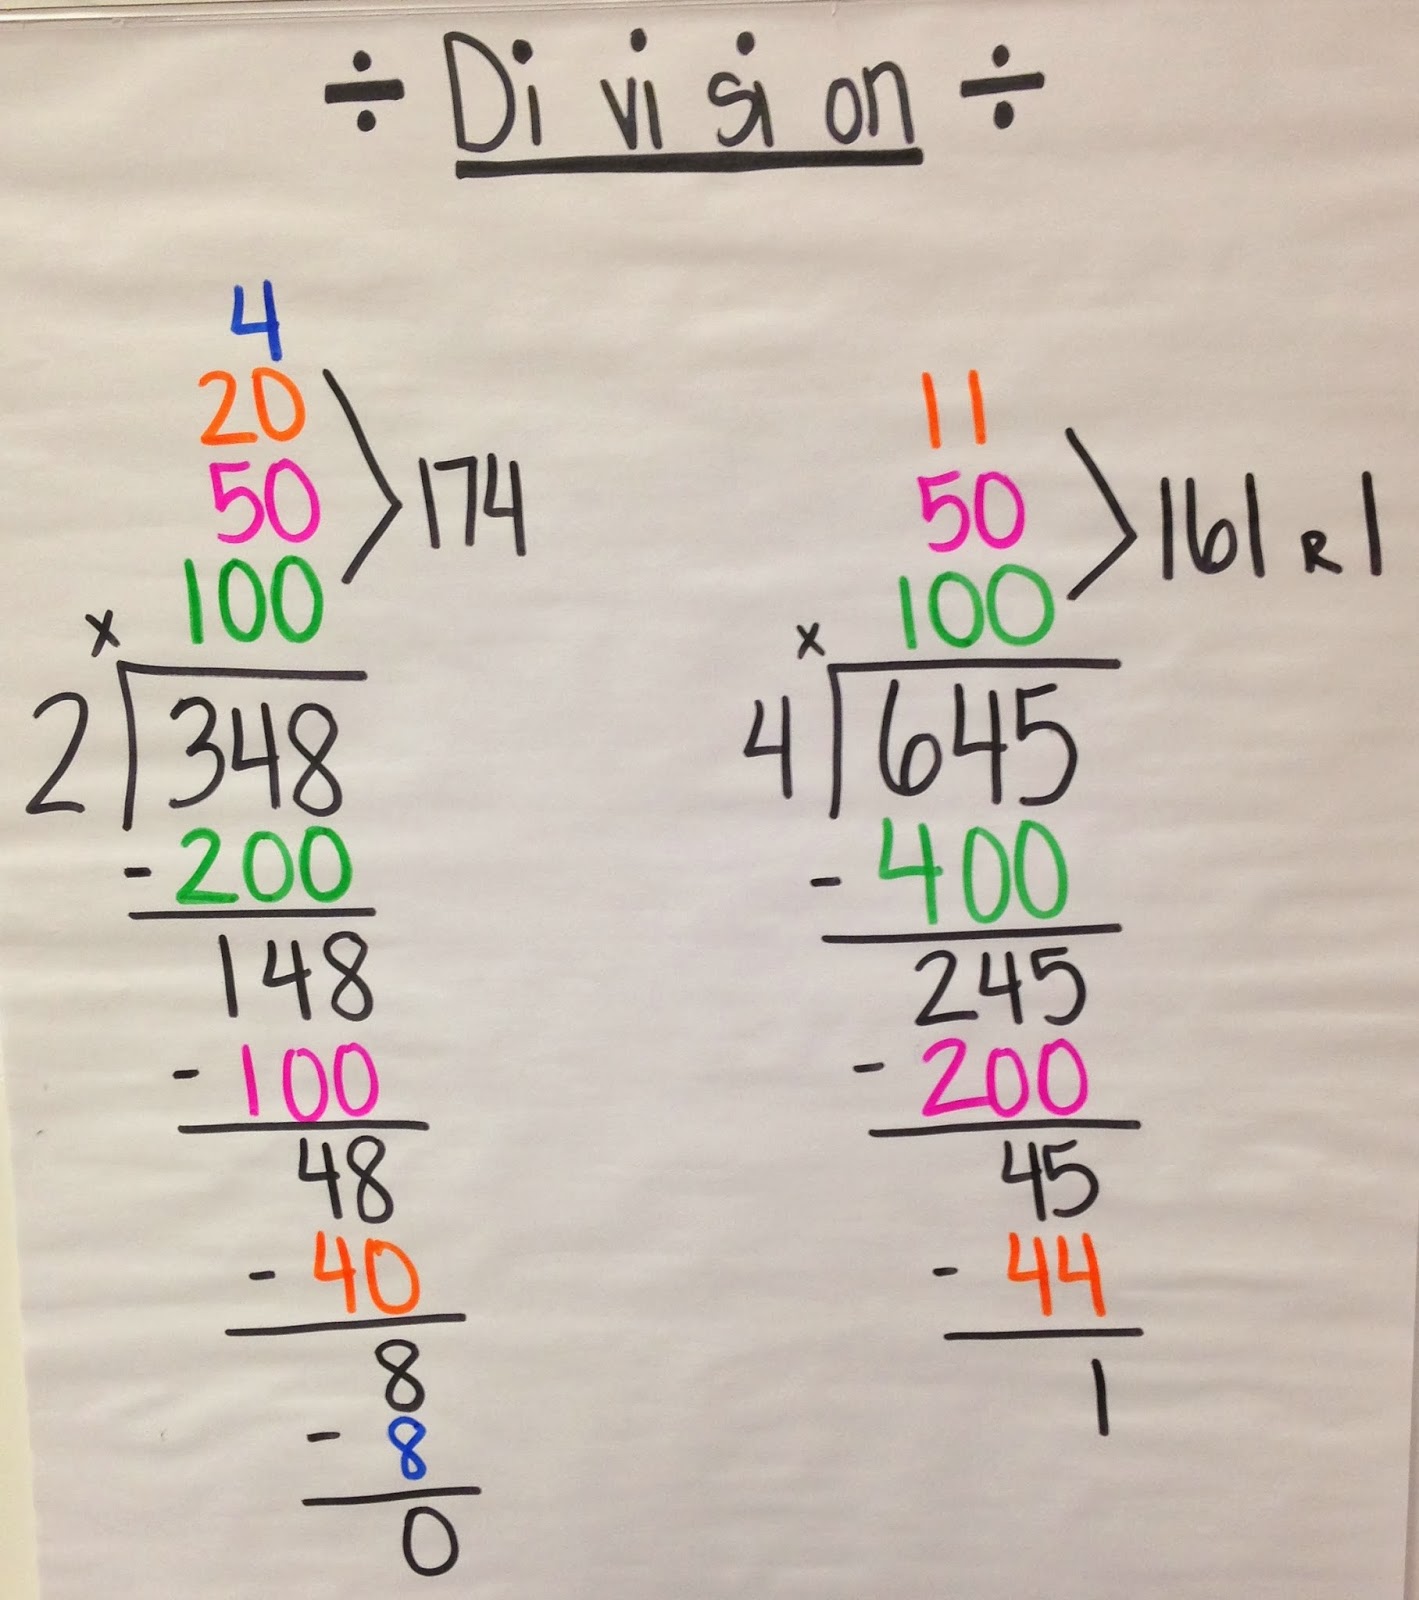 ÷ Division ÷
4
20
50
100
> 174
x
2 348
- 200
148
- 100
48
- 40
8
- 8
0
11
50
100
> 161 R 1
x
4 645
- 400
245
- 200
45
- 44
1